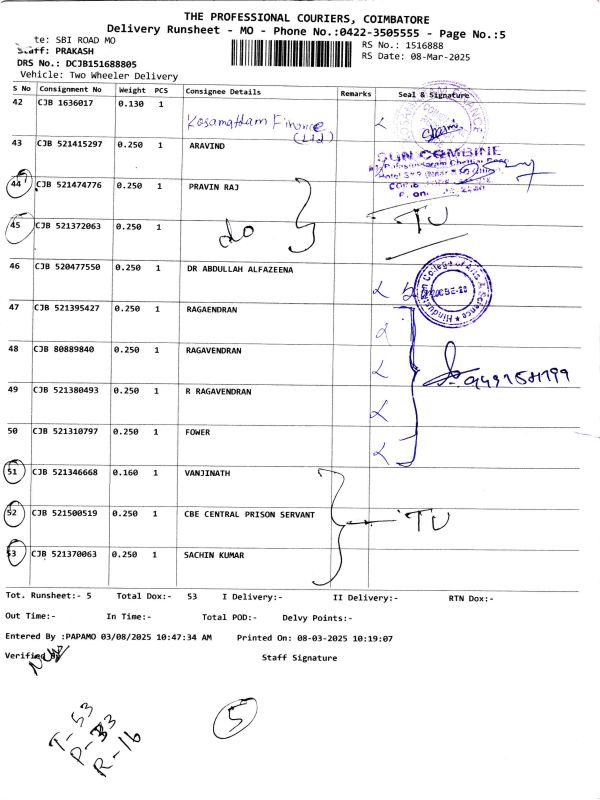 THE PROFESSIONAL COURIERS, COIMBATORE
Delivery Runsheet - MO - Phone No.:0422-3505555 - Page No.:5
te: SBI ROAD MO
Staff: PRAKASH
DRS No.: DCJB151688805
Vehicle: Two Wheeler Delivery
RS No.: 1516888
RS Date: 08-Mar-2025
S No Consignment No Weight PCS Consignee Details Remarks Seal & Signature
42 CJB 1636017 0.130 1 Kosamattam Finance (Ltd)
43 CJB 521415297 0.250 1 ARAVIND
SUN COMBINE
44 CJB 521474776 0.250 1 PRAVIN RAJ
45 CJB 521372063 0.250 1 do TU
46 CJB 520477550 0.250 1 DR ABDULLAH ALFAZEENA
Hindusthan College of Arts & Science
47 CJB 521395427 0.250 1 RAGAENDRAN
48 CJB 80889840 0.250 1 RAGAVENDRAN
49 CJB 521380493 0.250 1 R RAGAVENDRAN
50 CJB 521310797 0.250 1 FOWER
51 CJB 521346668 0.160 1 VANJINATH
52 CJB 521500519 0.250 1 CBE CENTRAL PRISON SERVANT TU
53 CJB 521370063 0.250 1 SACHIN KUMAR
Tot. Runsheet:- 5 Total Dox:- 53 I Delivery:- II Delivery:- RTN Dox:-
Out Time:- In Time:- Total POD:- Delvy Points:-
Entered By :PAPAMO 03/08/2025 10:47:34 AM Printed On: 08-03-2025 10:19:07
Verified Staff Signature
T-53
R-16
5